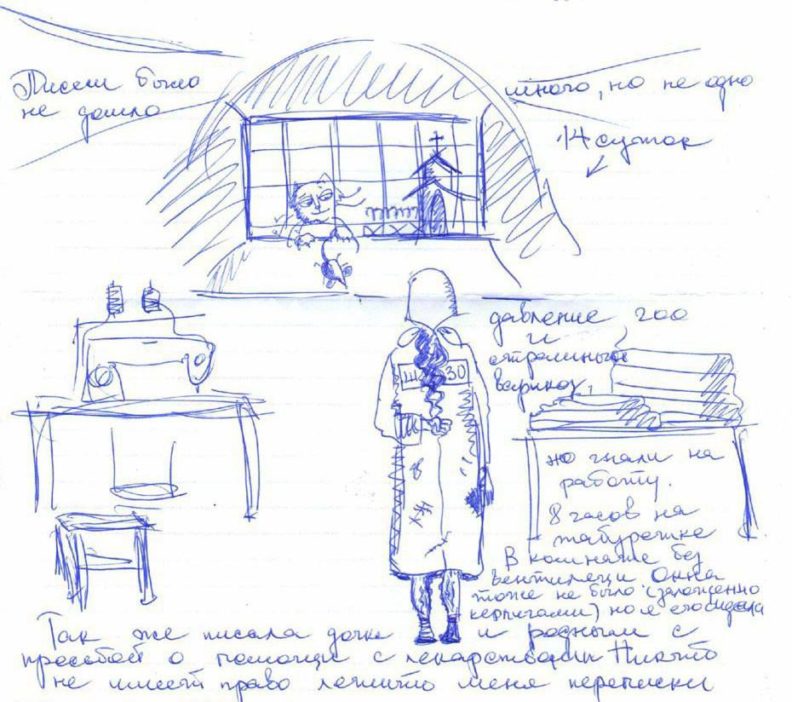 Писем было много, но не одно
не дошло
14 суток
давление 200
и
страшный
варикоз,
но гнали на
работу.
8 часов на
табуретке
В комнате без
вентиляци Окна
тоже не было (заложенно
кирпичами) но я его видела
Ш 30
Так же писала дочке и родным с
просьбой о помощи с лекарствами Никто
не имеет право лешить меня переписки